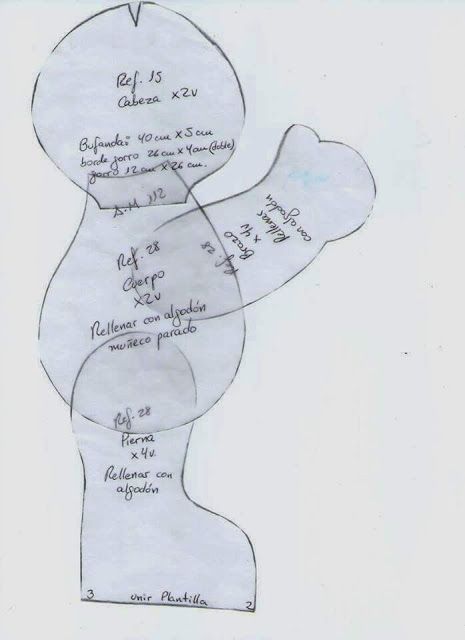 Ref. 15
Cabeza x2v
Bufanda: 40 cm x 5 cm
borde gorro 26 cm x 4 cm (doble)
gorro 12 cm x 26 cm.
D.M 112
Ref. 28
Cuerpo
x2v
Rellenar con algodón
muñeco parado
Ref. 28
Brazo
x 4v
Rellenar
con algodón
Ref. 28
Pierna
x 4v.
Rellenar con
algodón
3 unir Plantilla 2